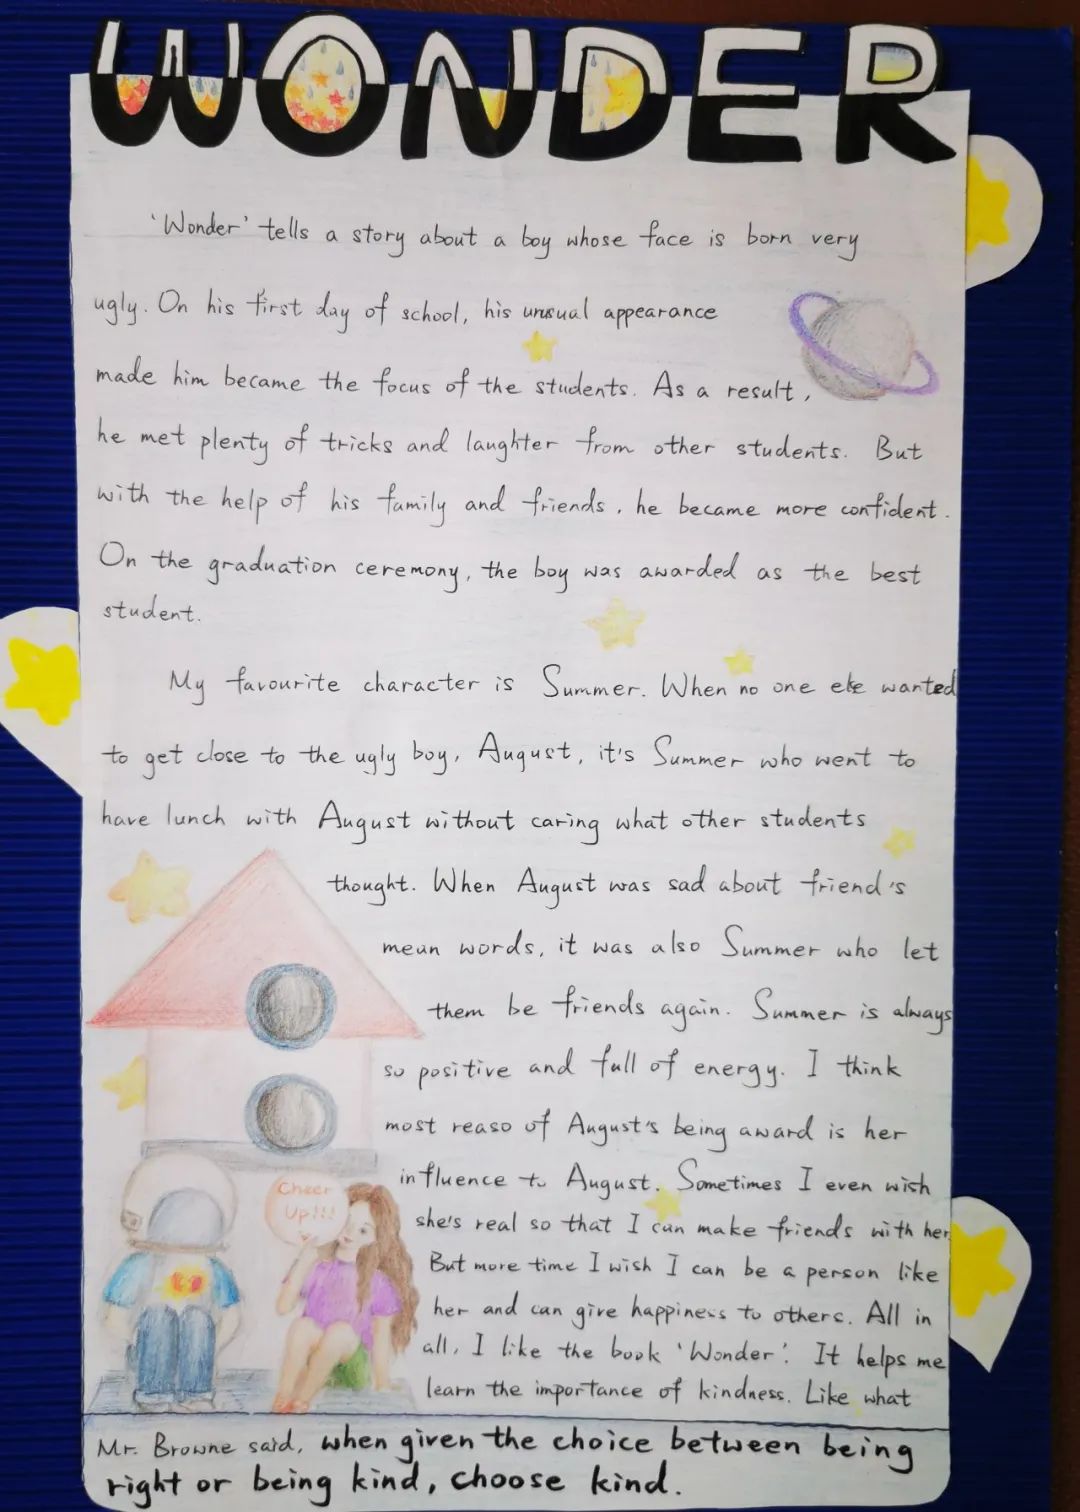 WONDER
'Wonder' tells a story about a boy whose face is born very
ugly. On his first day of school, his unusual appearance
made him became the focus of the students. As a result,
he met plenty of tricks and laughter from other students. But
with the help of his family and friends, he became more confident.
On the graduation ceremony, the boy was awarded as the best
student.
My favourite character is Summer. When no one else wanted
to get close to the ugly boy, August, it's Summer who went to
have lunch with August without caring what other students
thought. When August was sad about friend's
mean words, it was also Summer who let
them be friends again. Summer is always
so positive and full of energy. I think
most reaso of August's being award is her
influence to August. Sometimes I even wish
she's real so that I can make friends with her.
But more time I wish I can be a person like
her and can give happiness to others. All in
all, I like the book 'Wonder'. It helps me
learn the importance of kindness. Like what
Mr. Browne said, when given the choice between being
right or being kind, choose kind.
Cheer
Up!!!